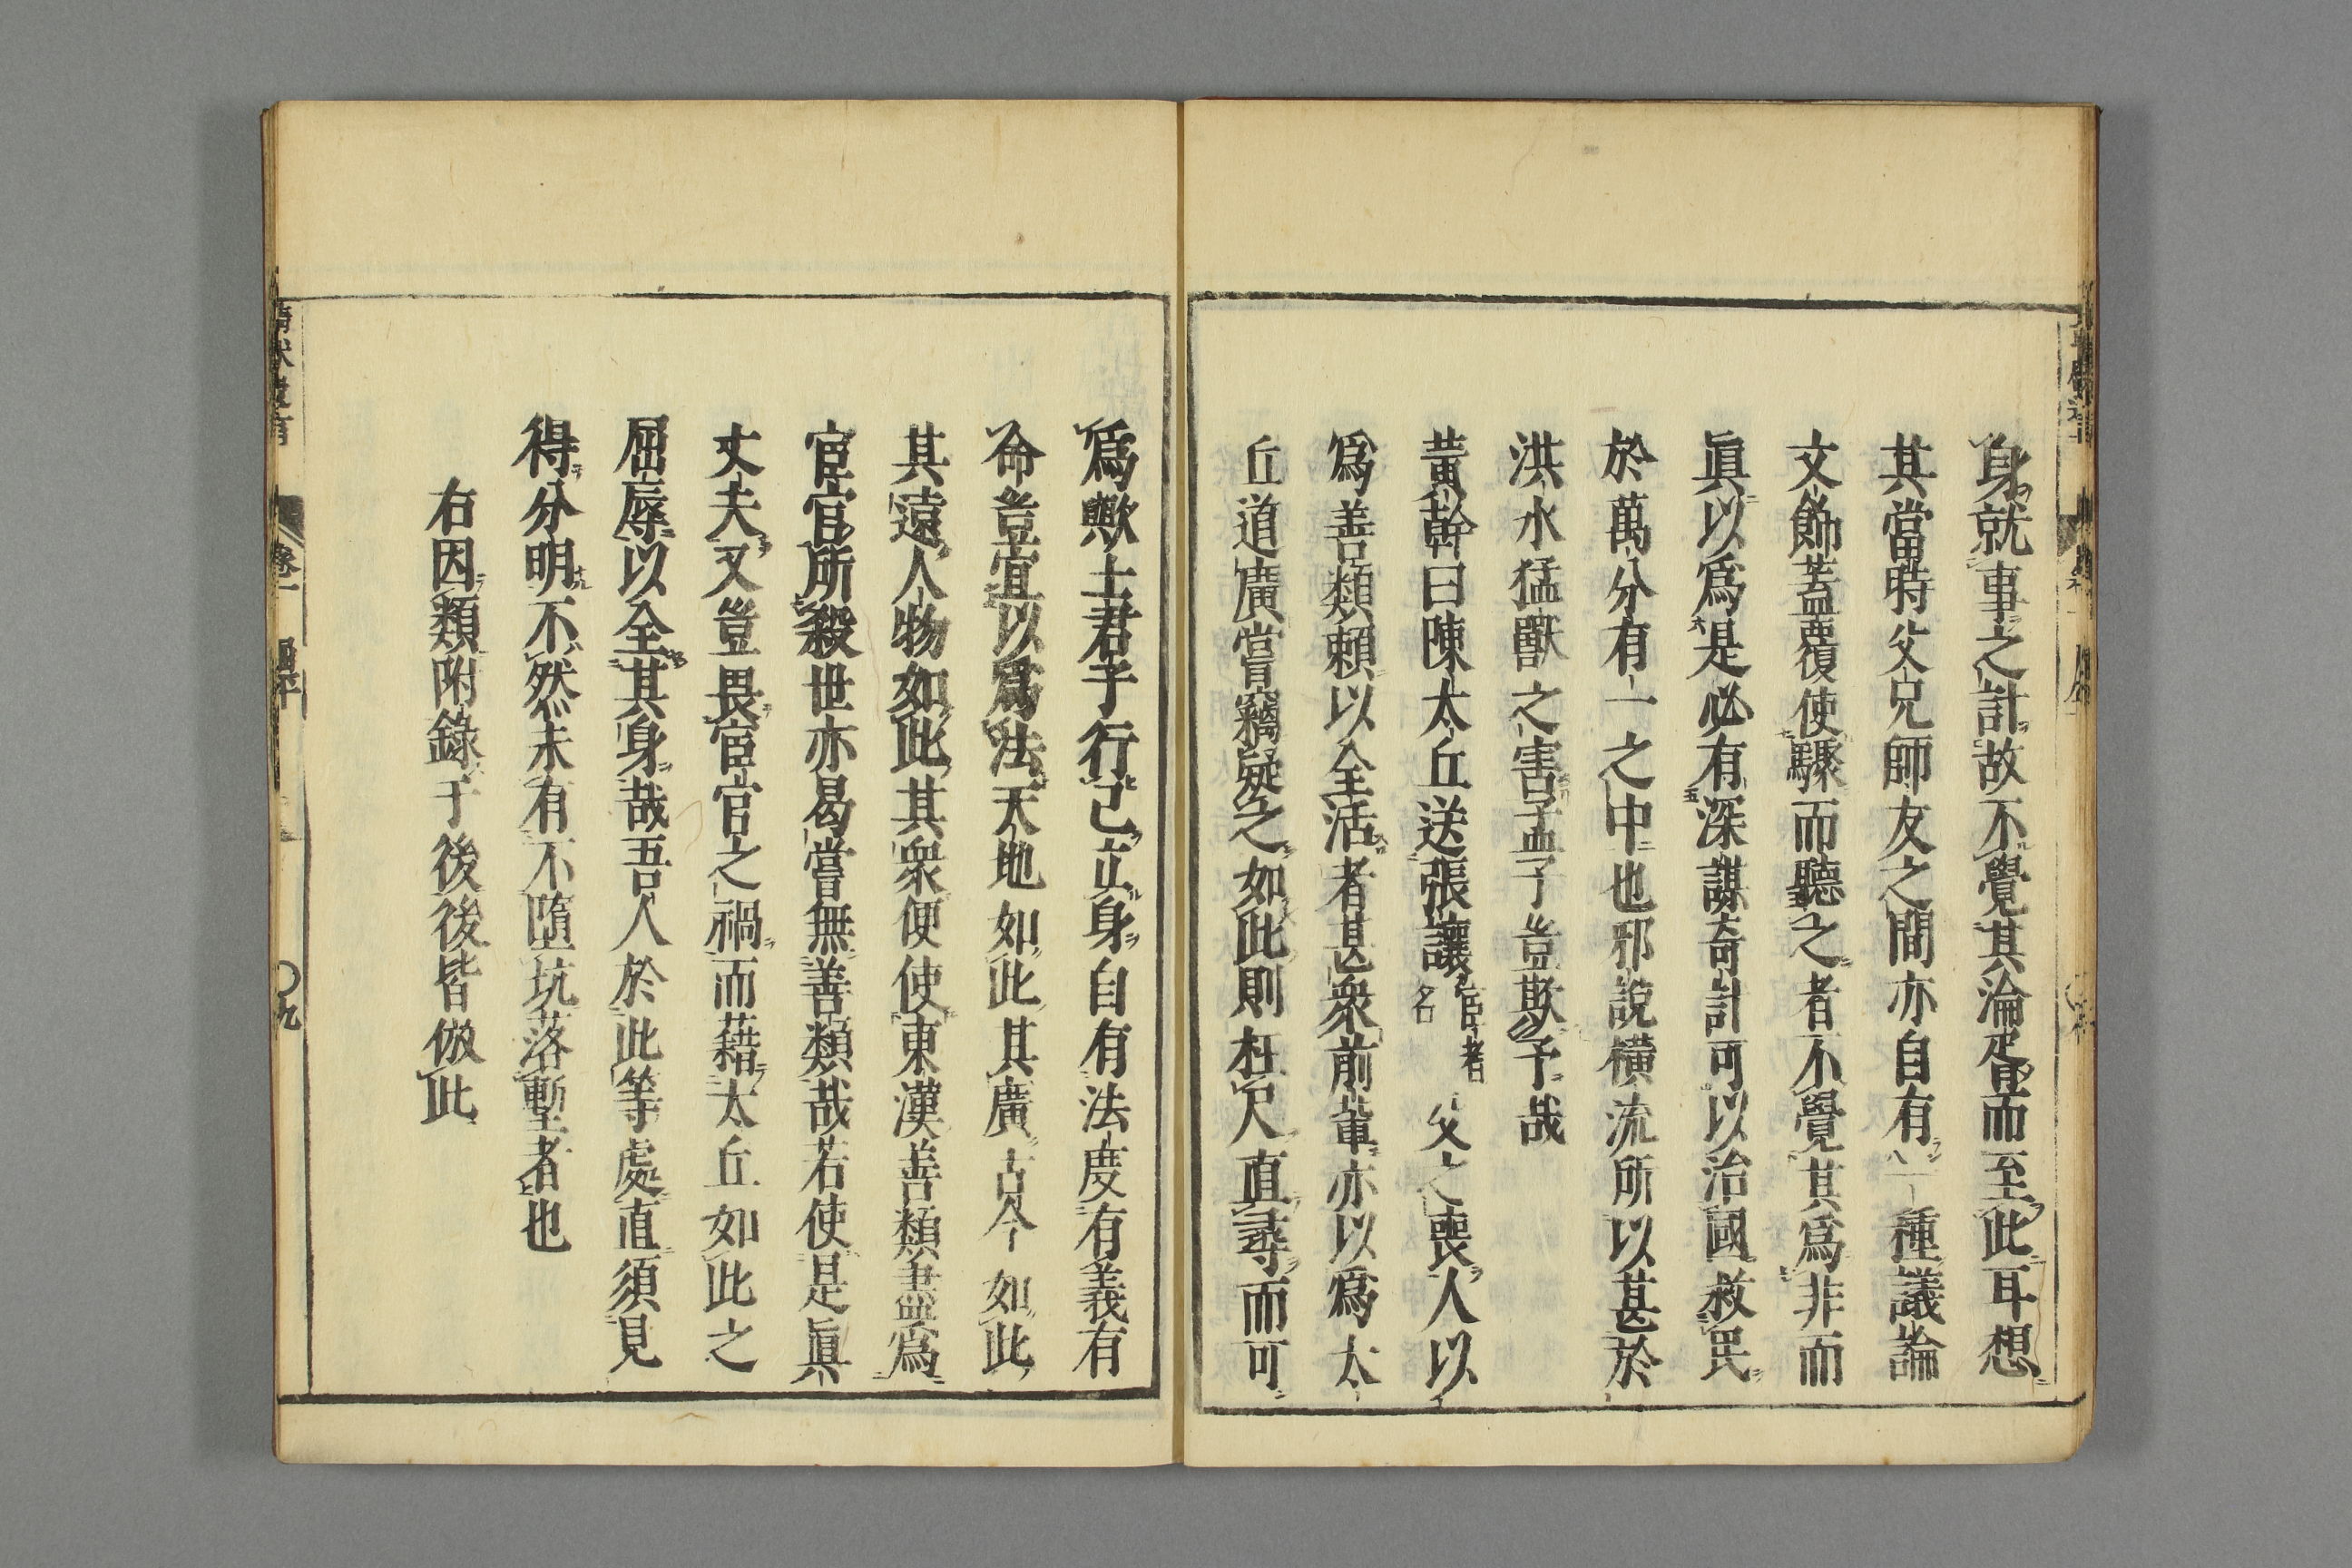 身就事之計故不覺其淪胥而至此耳想
其當時父兄師友之間亦自有一種議論
文飾蓋覆使驟而聽之者不覺其爲非而
眞以爲是必有深謀奇計可以治國救民
於萬分有一之中也邪說橫流所以甚於
洪水猛獸之害孟子豈欺予哉
黃榦曰陳太丘送張讓宦者名父之喪人以
爲善類賴以全活者甚衆前輩亦以爲太
丘道廣嘗竊疑之如此則枉尺直尋而可
爲歟士君子行己立身自有法度有義有
命豈宜以爲法天地如此其廣古今如此
其遠人物如此其衆便使東漢善類盡爲
宦官所殺世亦曷嘗無善類哉若使是眞
丈夫又豈畏宦官之禍而藉太丘如此之
屈辱以全其身哉吾人於此等處直須見
得分明不然未有不墮坑落塹者也
右因類附錄于後後皆倣此
卷一
〇九